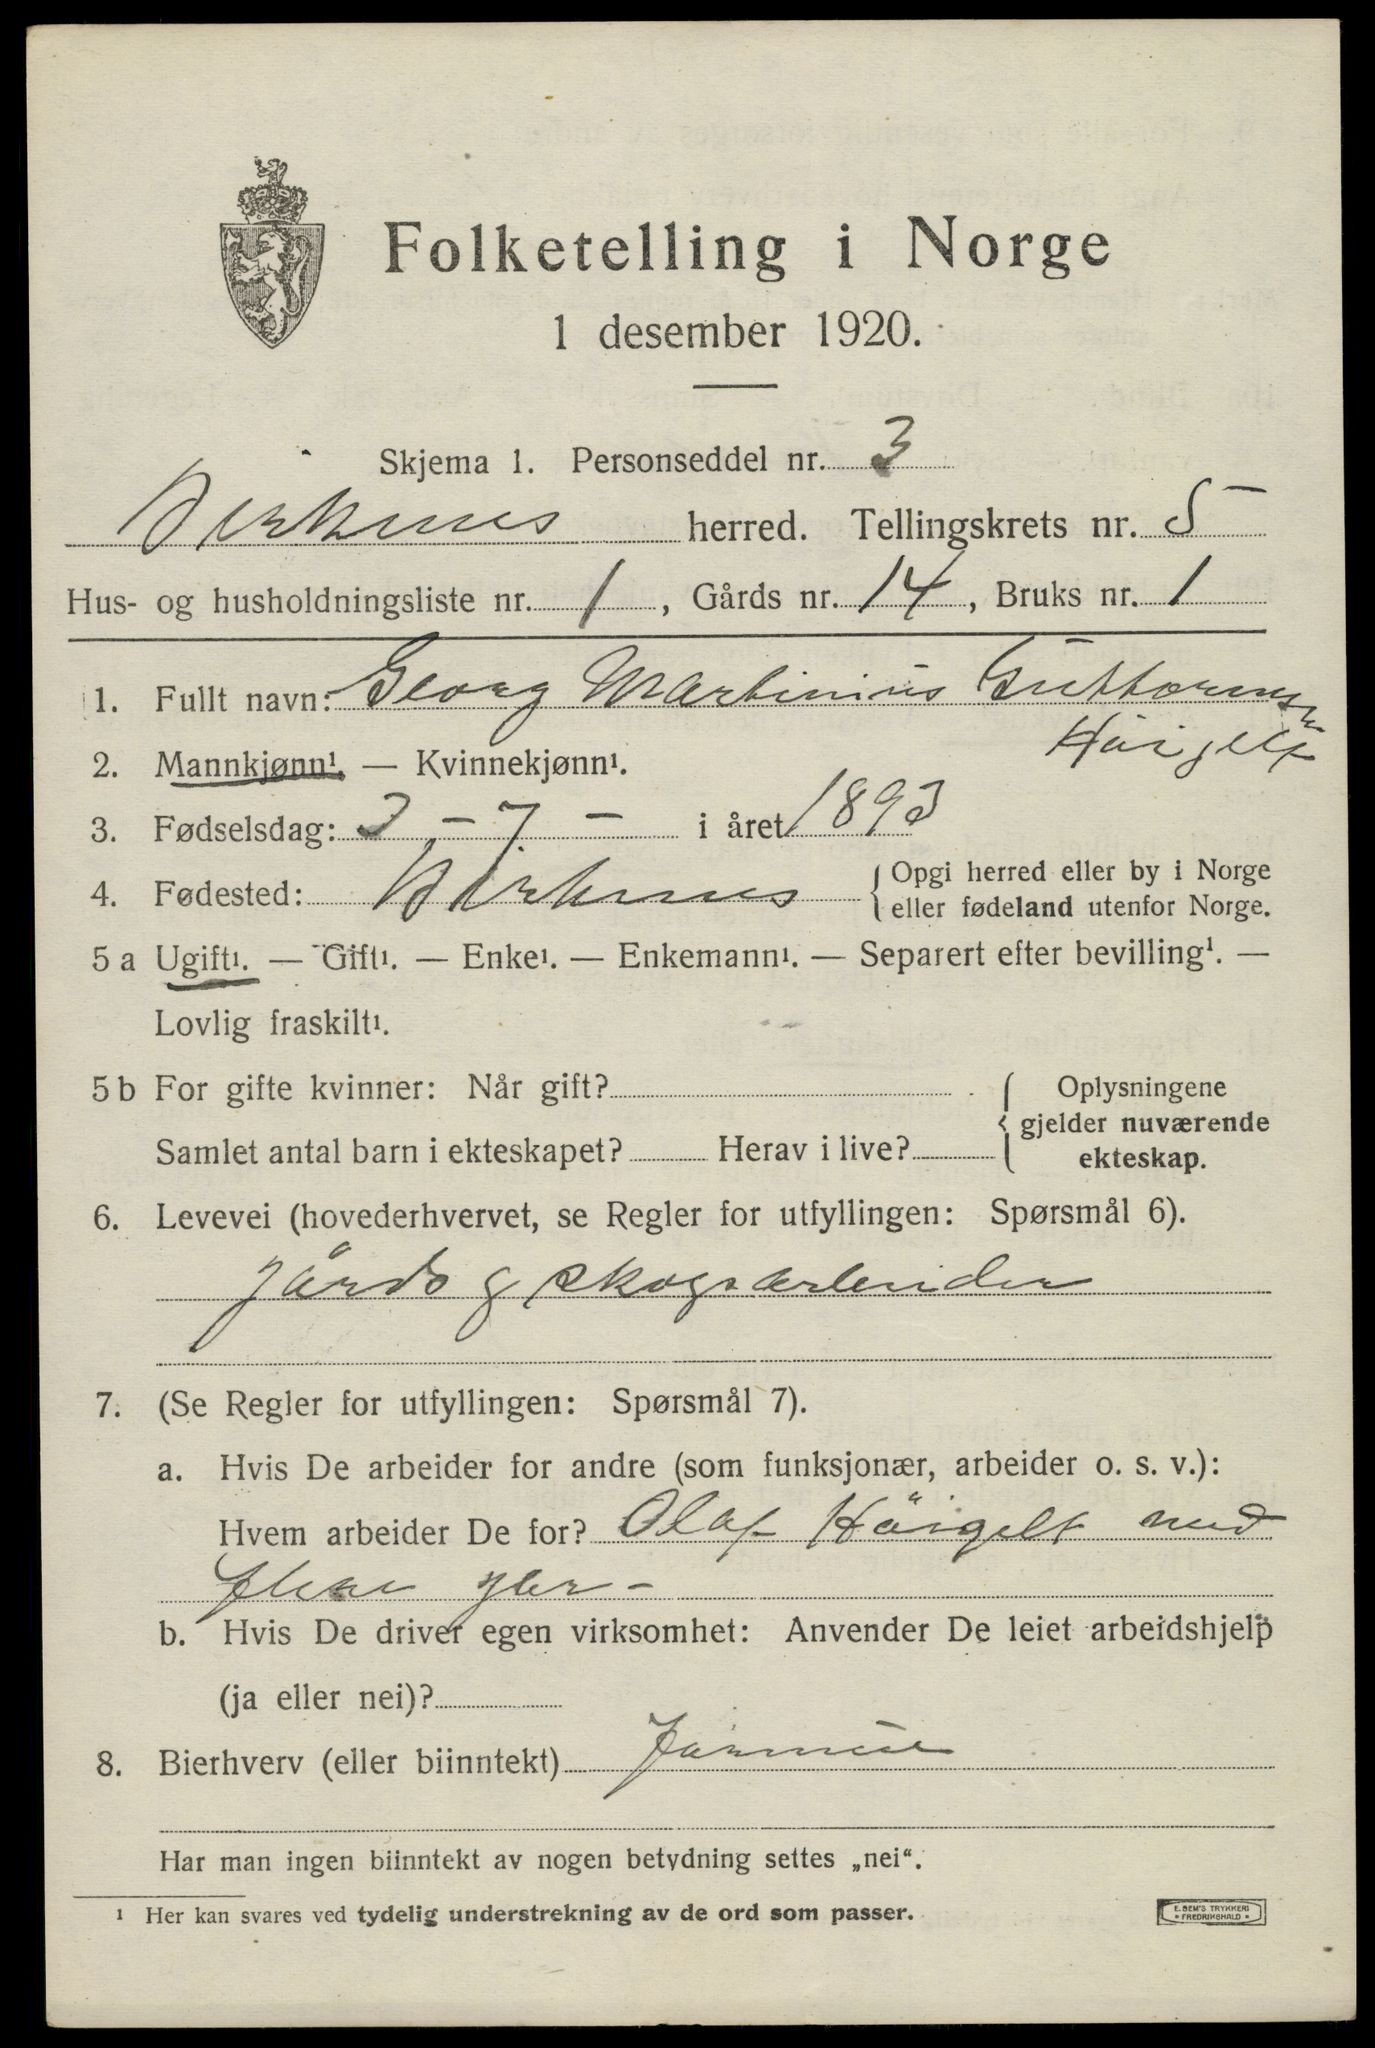 Folketelling i Norge
1 desember 1920.
Skjema 1. Personseddel nr. 3
Birkenes herred. Tellingskrets nr. 5
Hus- og husholdningsliste nr. 1, Gårds nr. 14, Bruks nr. 1
1. Fullt navn: Georg Martinius Guttormsen
Håigelt
2. Mannkjønn¹. — Kvinnekjønn¹.
3. Fødselsdag: 3 - 7 - i året 1893
4. Fødested: Birkenes { Opgi herred eller by i Norge
eller fødeland utenfor Norge.
5 a Ugift¹. — Gift¹. — Enke¹. — Enkemann¹. — Separert efter bevilling¹. —
Lovlig fraskilt¹.
5 b For gifte kvinner: Når gift?
Samlet antal barn i ekteskapet? Herav i live?
{ Oplysningene
gjelder nuværende
ekteskap.
6. Levevei (hovederhvervet, se Regler for utfyllingen: Spørsmål 6).
Jårds g skogsarbeider
7. (Se Regler for utfyllingen: Spørsmål 7).
a. Hvis De arbeider for andre (som funksjonær, arbeider o. s. v.):
Hvem arbeider De for? Olaf Håigelt med
flere
b. Hvis De driver egen virksomhet: Anvender De leiet arbeidshjelp
(ja eller nei)?
8. Bierhverv (eller biinntekt)
Har man ingen biinntekt av nogen betydning settes „nei“.
¹ Her kan svares ved tydelig understrekning av de ord som passer.
E. SEM'S TRYKKERI
• FREDRIKSHALD •